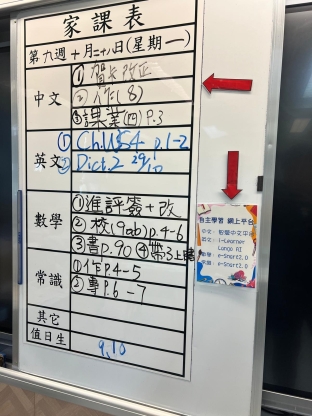 家課表
第九週 十月二十八日(星期一)
中文
① 賀卡改正
② 作(8)
③課業(四)P.3
英文
① Ch.WS4 p.1-2
② Dict.2 29/10
數學
①進評簽+改
②校(9ab)p.4-6
③書p.90 ④帶3上
常識
①作P4-5
②專P.6-7
其它
值日生
9,10
自主學習 網上平台
中文: 智愛中文平台
英文: i-Learner
Lango AI
數學: e-Smart2.0
常識: e-Smart2.0